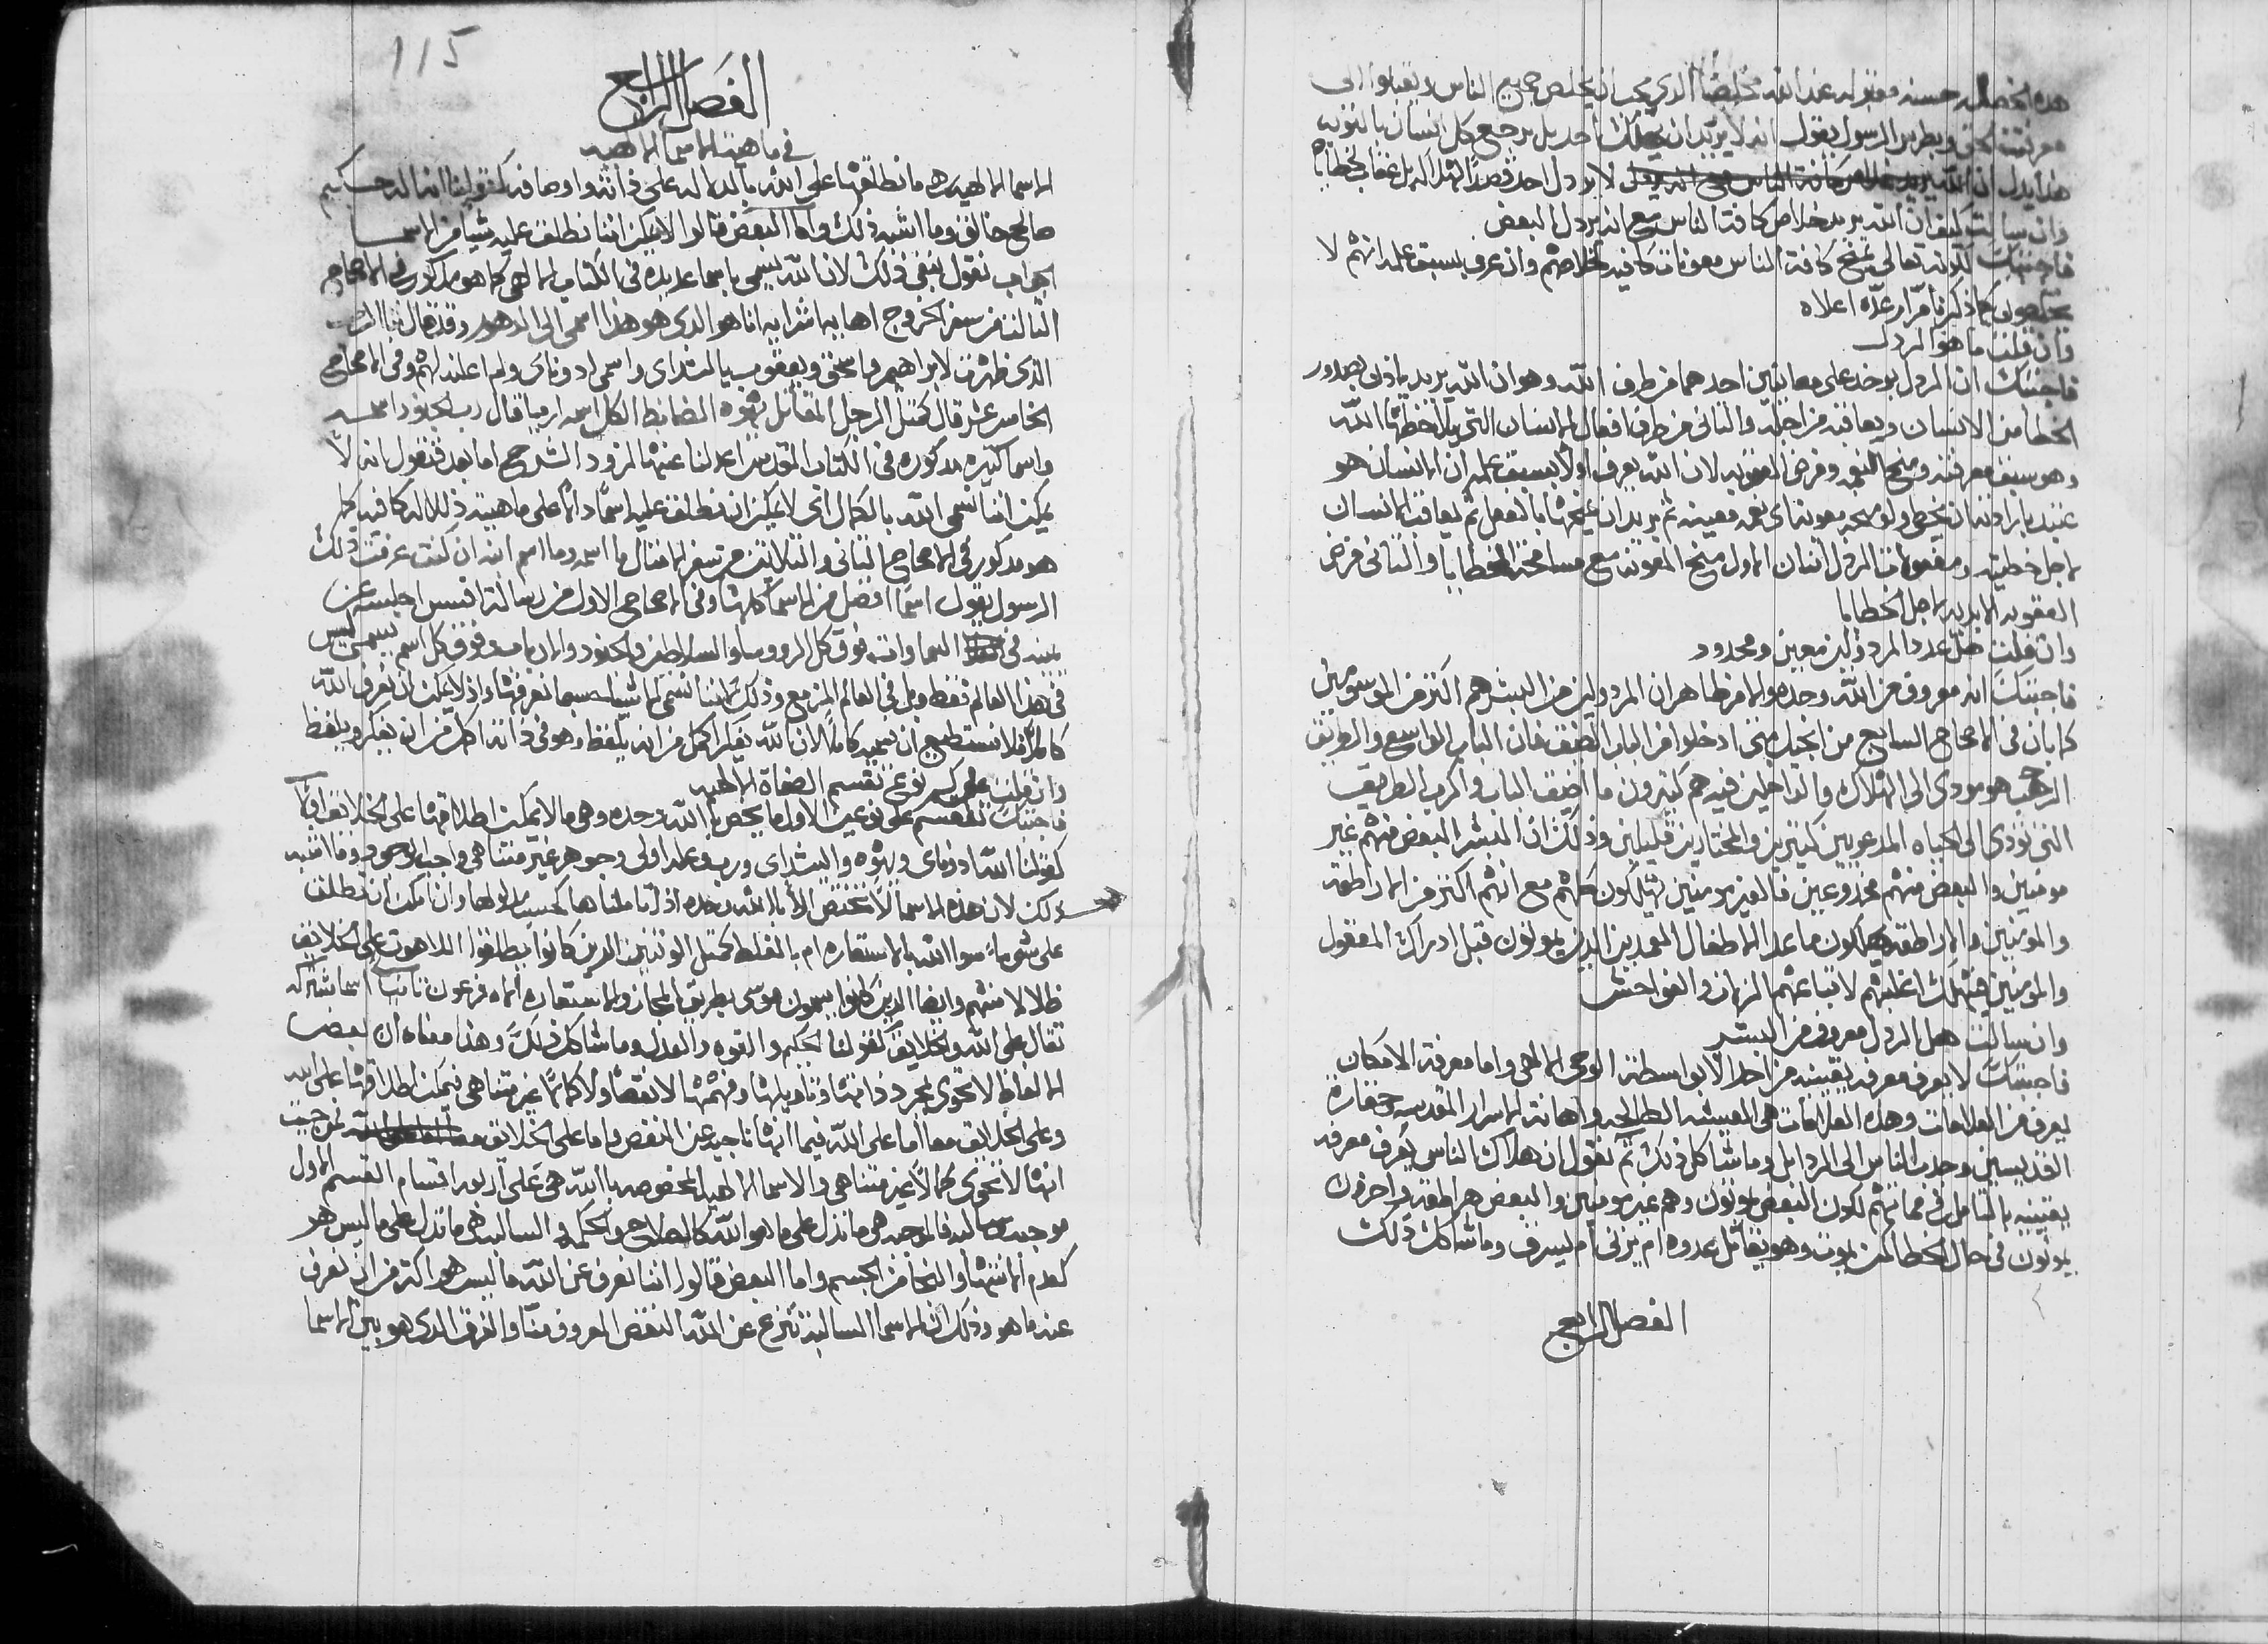 هذه الخصله حسنه ومقبوله عند الله مخلصنا الذي يحب ان يخلص جميع الناس ويقبلوا الى
معرفته الحق وبطرس الرسول يقول انه لا يريد ان يهلك احد بل يرجع كل انسان بالتوبه
هذا يدل ان الله لا يردل احد قصدًا لهذا كه بل عقاب لخطاياه
وان سالت كيف ان الله يريد خلاص كافة الناس مع انه يردل البعض
فاجبتك لكونه تعالى يمنح كافة الناس معونات كافيه لخلاصهم وان عرف بسبق علمه انهم لا
يخلصون كما ذكرنا مرار عدّه اعلاه
وان قلت ما هو الردل
فاجبتك ان الردل يوخد على معانيين احدهما من طرف الله وهو ان الله يريد ياذن بصدور
الخطا من الانسان ويعاقبه من اجله والثاني من طرف افعال الانسان التي يلاحظها الله
وهو سبق معرفته ومنح النعمه وفرض العقوبه لان الله يعرف اولًا بسبق علمه ان الانسان هو
عتيد بارادته ان يخطي ولو منحه معونته اي نعمه معينه ثم يريد ان يمنحها بالفعل ثم يعاقب الانسان
لاجل خطيته ومفعولات الردل اثنان الاول منح المعونه مع مسامحة الخطايا والثاني فرض
العقوبه الابديه لاجل الخطايا
وان قلت هل عدد المردولين معين ومحدود
فاجبتك انه معروف من الله وحده والامر ظاهر ان المردولين من البشر هم اكثر من الموسومين
كما بان في الاصحاح السابع من انجيل متى ادخلوا من الباب الضيق فان الباب الواسع والطريق
الرحب هو مودي الى الهلاك والداخلين فيه هم كثيرون ما اضيق الباب واكرب الطريق
التي تودي الى الحياه المدعويين كثيرين والمختارين قليلين وذلك ان البشر البعض منهم غير
مومنين والبعض منهم مخدوعين فالغير مومنين يهلكون كلهم مع انهم اكثر من الاراطقه
والمومنين والاراطقه يهلكون ما عدا الاطفال المعمدين الذين يموتون قبل ادراك المعقول
والمومنين فيهلك اغلبهم لاتباعهم الزمان والفواحش
وان سالت هل الردل معروف من البشر
فاجبتك لا يعرف معرفه يقينيه من احد الا بواسطة الوحي الالهي واما معرفة الامكان
يعرف من العلامات وهذه العلامات هي المعيشه الطالحه واهانة الاسرار المقدسه حقارة
القديسين وجدب الناس الى الردايل وما شاكل ذلك ثم نقول ان هلاك الناس يُعرف معرفه
يقينيه بالتامل في مماتهم لكون البعض يموتون وهم غير مومنين والبعض هراطقه واخرون
يموتون في حال الخطا كمن يموت وهو يقاتل عدوه ام يزني ام يسرق وما شاكل ذلك
الفصل الرابع
115
الفصل الرابع
في ماهية الاسما الالهيه
الاسما الالهيه هي ما نطلقها على الله بالدلاله على ذاته واوصافه كقولنا انه اله حكيم
صالح خالق وما اشبه ذلك واما البعض قالوا لا يمكن اننا نطلق عليه شيا من الاسما
الجواب نقول ينفي ذلك لان الله يسمى باسما عديده في الكتاب الالهي كما هو مذكور في الاصحاح
الثالث من سفر الخروج اهايه اشر ايه انا هو الذي هو هذا اسمي الى الدهور وقد قال انا الرب
الذي ظهرت لابراهيم واسحق ويعقوب بيا لشداي واسمي ادوناي ولم اعلنه لهم وفي الاصحاح
الخامس عشر قال كمثل الرجل المقاتل يهوه الضابط الكل اسمه ارميا قال رب الجنود اسمه
واسما كثيره مذكوره في الكتاب المقدس اعدلنا عنها لزود الشرح اما بعد فنقول انه لا
يمكن اننا نسمي الله بالكمال اي لا يمكن ان نطلق عليه اسمًا دالًا على ماهيته ذلاله كافيه كما
هو مذكور في الاصحاح الثاني والثلاثين من سفر الامثال ما اسمه وما اسم ابنه ان كنت عرفت ذلك
الرسول يقول اسمًا افضل من الاسما كلها وفي الاصحاح الاول من رسالة افسس اجلسه عن
يمينه في السماوات فوق كل الرووسا والسلاطين والجنود والارباب وفوق كل اسم يسمى ليس
في هذا العالم فقط وبل في العالم المزمع وذلك لاننا نسمي الاشيا حسبما نعرفها واذ لا يمكن ان نعرف الله
كاملًا فلا نستطيع ان نسميه كاملًا لان الله يفكر اكمل من انه يلفظ وهو في ذاته اكمل من انه يفكر ويلفظ
وان قلت على كم نوع تقسم الصفاة الالهيه
فاجبتك تنقسم على نوعين الاول ما يختص بالله وحده وهي ما لا يمكن اطلاقها على الخلايق
كقولنا الله ادوناي ويهوه والشداي ورب وعله اولى وجوهر غير متناهي واجب الوجود وما اشبه
ذلك لان هذه الاسما لا تختص الا بالله وحده اذا تاملناها كحسب مدلولها وان امكن ان تطلق
على شي ما سوا الله بالاستعاره ام بالغلط كمثل الوثنيين الذين كانوا يطلقوا اللاهوت على الخلايق
ظلالا منهم وايضا الذين كانوا يسمون موسى بطريق المجاز والاستعاره الاه فرعون ثانيًا اسما مشتركه
تقال على الله والخلايق كقولنا الحكيم والقوه والعدل وما شاكل ذلك وهذا معناه ان بعض
الالفاظ لا تحوي بمجرد ذاتها وتاويلها وفهمها لا نقصًا ولا كمالًا غير متناهي فيمكن اطلاقها على الله
وعلى الخلايق معا اما على الله فيما انها ناجيه عن النقص واما على الخلايق من حيث
انها لا تحوي كمالًا غير متناهي والاسما الالهيه المخصوصه بالله هي على اربعه اقسام القسم الاول
موجبه وسالبه فالموجبه هي ما تدل على ما هو الله كالصلاح والحكمه والسالبه هي ما تدل على ما ليس هو
كعدم الانتها والنجا من الجسم واما البعض قالوا اننا نعرف عن الله ما ليس هو اكثر من ان نعرف
عنه ما هو وذلك ان الاسما السالبه تنزع عن الله النقص المعروف منا والفرق الذي هو بين الاسما